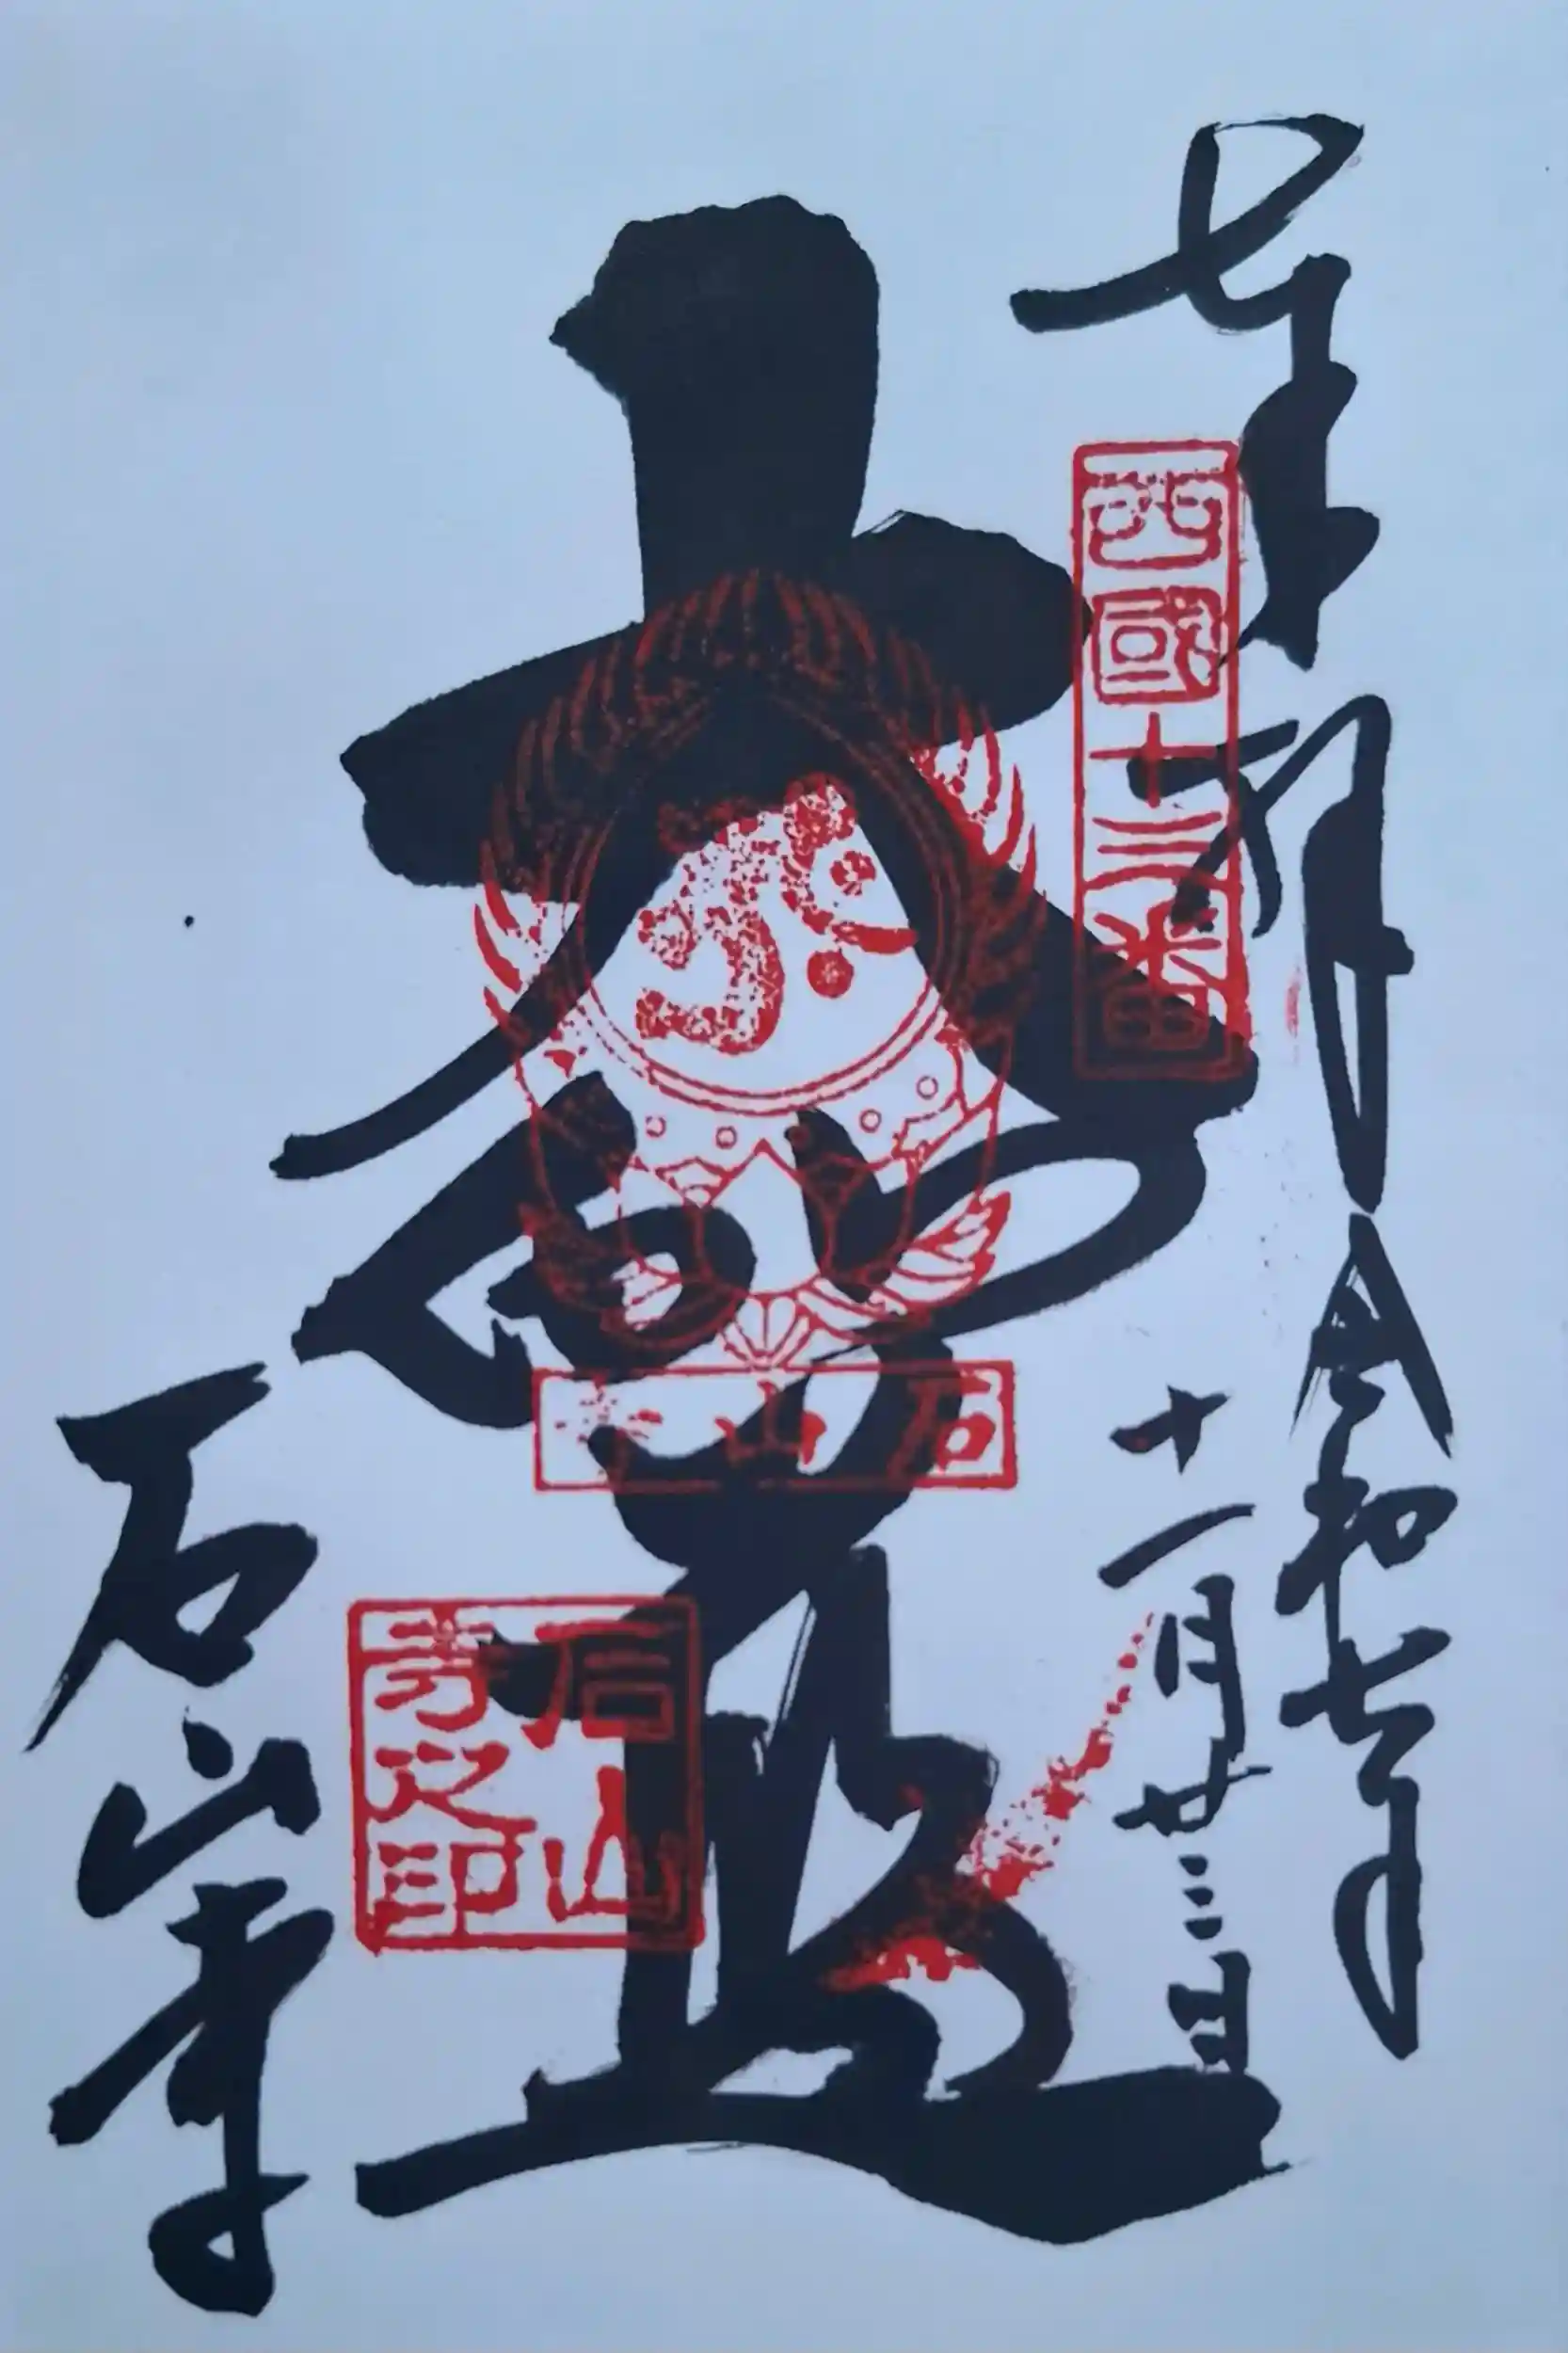 奉拝 令和七年
十一月廿三日
西國十三番
大悲殿
石山寺
石山寺
石山寺之印